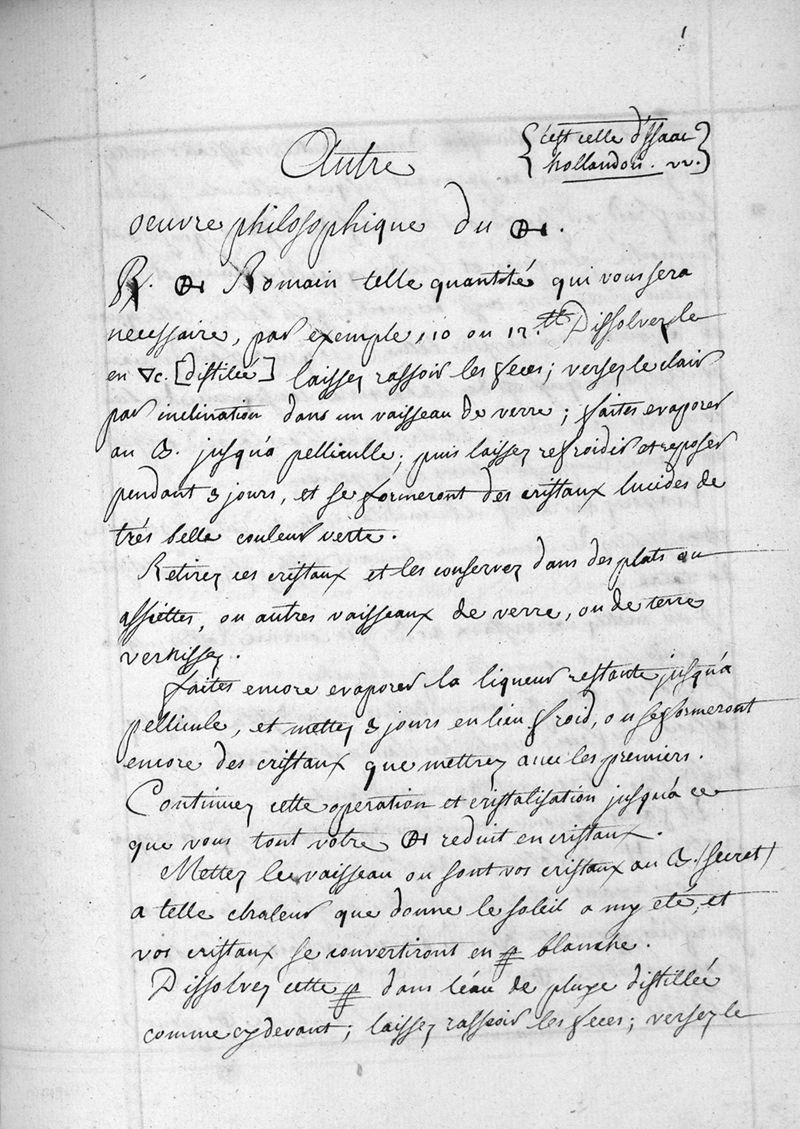 1
{c'est celle d'Isaac
hollandois. vv.}
Autre
oeuvre philosophique du 🜖.
R. 🜖 Romain telle quantité qui vous sera
necessaire, par exemple, 10 ou 12. tt Dissolvez le
en 🜄c. [distilée] laissez rassoir les feces; versez le clair
par inclination dans un vaisseau de verre; faites evaporer
au B. jusqu'a pelliculle; puis laissez refroidir et reposer
pendant 3 jours, et se formeront des cristaux lucides de
trés belle couleur verte.
Retirez ces cristaux et les conservez dans des plats ou
assiettes, ou autres vaisseaux de verre, ou de terre
vernissez.
faites encore evaporer la liqueur restante jusqu'a
pellicule, et mettez 3 jours en lieu froid, ou se formeront
encore des cristaux que mettrez avec les premiers.
Continuez cette operation et cristalisation jusqu'a ce
que vous tout votre 🜖 reduit en cristaux.
Mettez le vaisseau ou sont vos cristaux au B. (secret)
a telle chaleur que donne le soleil a my eté, et
vos cristaux se convertiront en blanche.
Dissolvez cette dans l'eau de pluye distillée
comme cy devant; laissez rassoir les feces; versez le